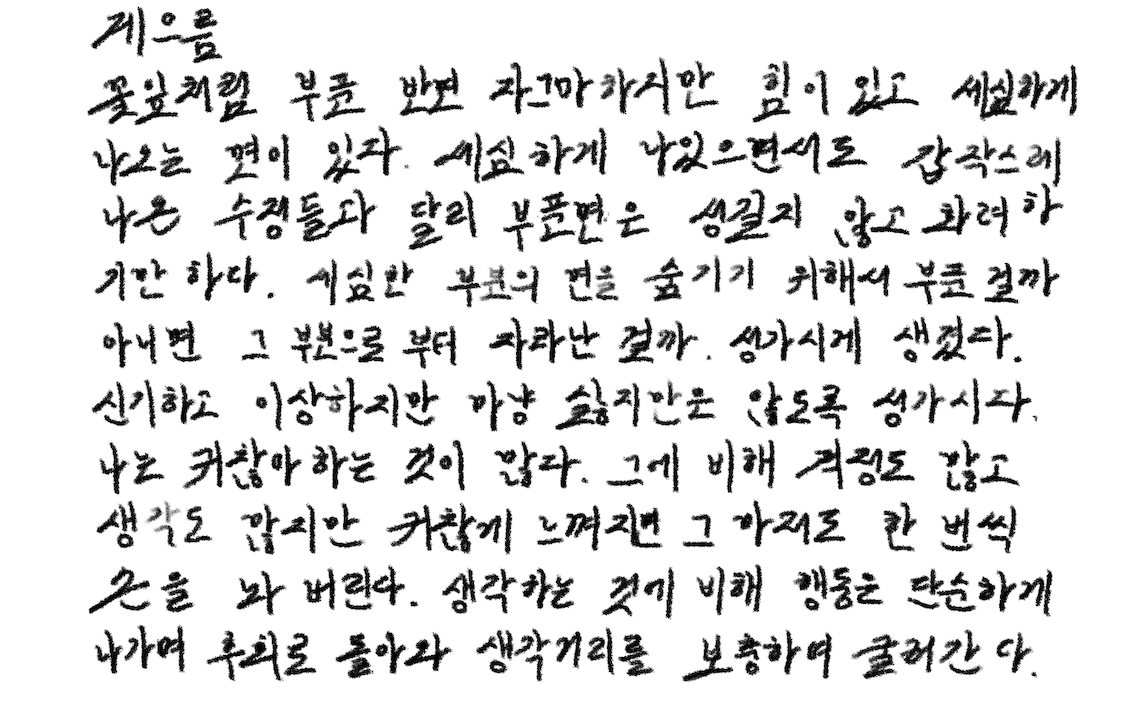 게으름
꽃잎처럼 부푼 반면 자그마하지만 힘이 있고 세심하게
나오는 면이 있다. 세심하게 나있으면서도 갑작스레
나온 수정들과 달리 부푼면은 성길지 않고 화려하
기만 하다. 세심한 부분의 면을 숨기기 위해서 부푼 걸까
아니면 그 부분으로 부터 자라난 걸까. 성가시게 생겼다.
신기하고 이상하지만 마냥 싫지만은 않도록 성가시다.
나는 귀찮아 하는 것이 많다. 그에 비해 걱정도 많고
생각도 많지만 귀찮게 느껴지면 그 마저도 한 번씩
손을 놔 버린다. 생각하는 것에 비해 행동은 단순하게
나가며 후회로 돌아와 생각거리를 보충하며 굴러간다.